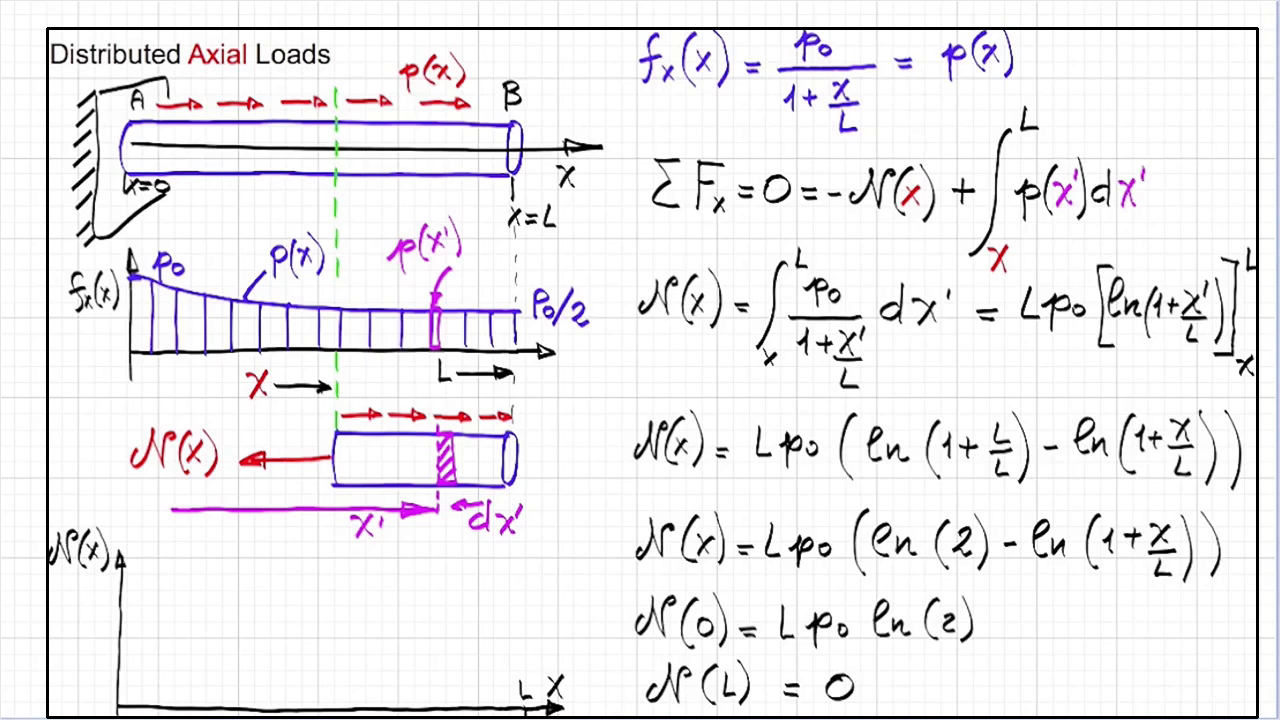 Distributed Axial Loads
p(x)
A
B
x=0
x
x=L
fₓ(x)
p₀
p(x)
p(x')
P₀/2
x
L
N(x)
x'
dx'
N(x)
L x
fₓ(x) = p₀/(1+x/L) = p(x)
ΣFₓ = 0 = -N(x) + ∫ₓᴸ p(x')dx'
N(x) = ∫ₓᴸ p₀/(1+x'/L) dx' = Lp₀[ln(1+x'/L)]ₓᴸ
N(x) = Lp₀(ln(1+L/L) - ln(1+x/L))
N(x) = Lp₀(ln(2) - ln(1+x/L))
N(0) = Lp₀ ln(2)
N(L) = 0